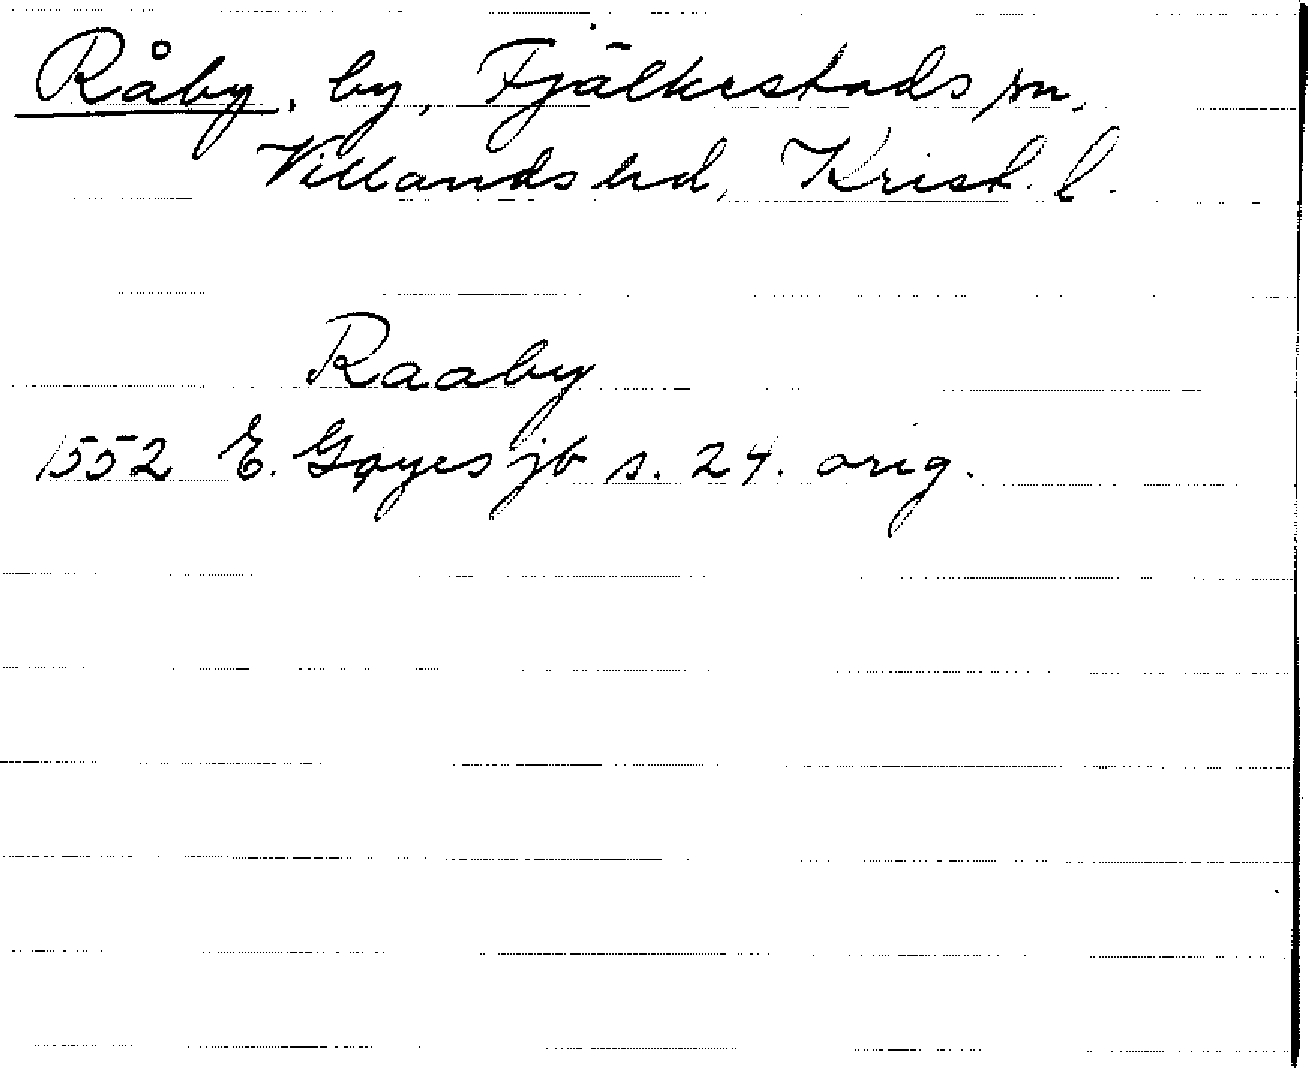 Råby, by, Fjälkestads sn,
Villands hd, Krist. l.
Raaby
1552 E. Gøyes jb s. 24. orig.